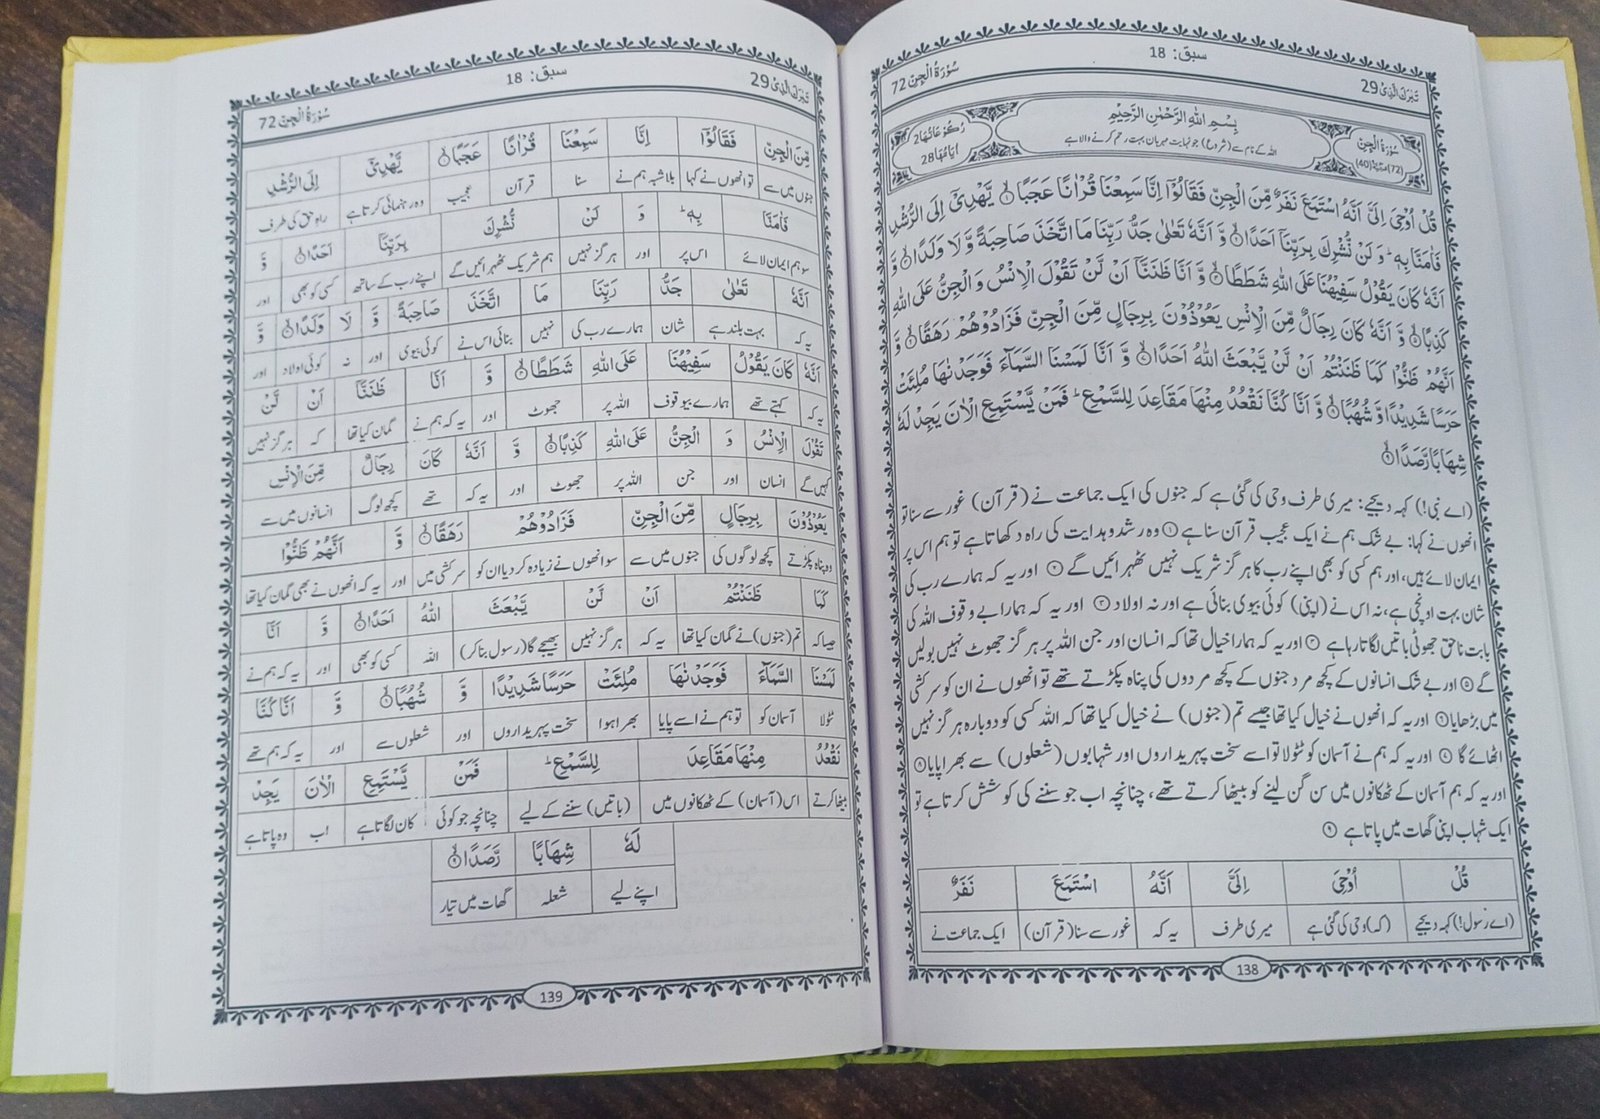 تَبٰرَكَ الَّذِیْ 29
سبق: 18
سُوْرَةُ الْجِنِّ 72
سُوْرَةُ الْجِنِّ
(72) مَكِّيَّةٌ (40)
بِسْمِ اللّٰهِ الرَّحْمٰنِ الرَّحِیْمِ
اللہ کے نام سے (شروع) جو نہایت مہربان بہت رحم کرنے والا ہے
رُكُوْعَاتُهَا 2
اٰیَاتُهَا 28
قُلْ اُوْحِیَ اِلَیَّ اَنَّهُ اسْتَمَعَ نَفَرٌ مِّنَ الْجِنِّ فَقَالُوْۤا اِنَّا سَمِعْنَا قُرْاٰنًا عَجَبًا ۙ۱ یَّهْدِیْۤ اِلَی الرُّشْدِ
فَاٰمَنَّا بِهٖ ؕ وَ لَنْ نُّشْرِكَ بِرَبِّنَاۤ اَحَدًا ۙ۲ وَّ اَنَّهٗ تَعٰلٰی جَدُّ رَبِّنَا مَا اتَّخَذَ صَاحِبَةً وَّ لَا وَلَدًا ۙ۳ وَّ
اَنَّهٗ كَانَ یَقُوْلُ سَفِیْهُنَا عَلَی اللّٰهِ شَطَطًا ۙ۴ وَّ اَنَّا ظَنَنَّاۤ اَنْ لَّنْ تَقُوْلَ الْاِنْسُ وَ الْجِنُّ عَلَی اللّٰهِ
كَذِبًا ۙ۵ وَّ اَنَّهٗ كَانَ رِجَالٌ مِّنَ الْاِنْسِ یَعُوْذُوْنَ بِرِجَالٍ مِّنَ الْجِنِّ فَزَادُوْهُمْ رَهَقًا ۙ۶ وَّ
اَنَّهُمْ ظَنُّوْا كَمَا ظَنَنْتُمْ اَنْ لَّنْ یَّبْعَثَ اللّٰهُ اَحَدًا ۙ۷ وَّ اَنَّا لَمَسْنَا السَّمَآءَ فَوَجَدْنٰهَا مُلِئَتْ
حَرَسًا شَدِیْدًا وَّ شُهُبًا ۙ۸ وَّ اَنَّا كُنَّا نَقْعُدُ مِنْهَا مَقَاعِدَ لِلسَّمْعِ ؕ فَمَنْ یَّسْتَمِعِ الْاٰنَ یَجِدْ لَهٗ
شِهَابًا رَّصَدًا ۙ۹
(اے نبی!) کہہ دیجیے: میری طرف وحی کی گئی ہے کہ جنوں کی ایک جماعت نے (قرآن) غور سے سنا تو
انھوں نے کہا: بے شک ہم نے ایک عجیب قرآن سنا ہے ۱ وہ رشد و ہدایت کی راہ دکھاتا ہے تو ہم اس پر
ایمان لائے ہیں، اور ہم کسی کو بھی اپنے رب کا ہرگز شریک نہیں ٹھہرائیں گے ۲ اور یہ کہ ہمارے رب کی
شان بہت اونچی ہے، نہ اس نے (اپنی) کوئی بیوی بنائی ہے اور نہ اولاد ۳ اور یہ کہ ہمارا بے وقوف اللہ کی
بابت ناحق جھوٹی باتیں لگاتا رہا ہے ۴ اور یہ کہ ہمارا خیال تھا کہ انسان اور جن اللہ پر ہرگز جھوٹ نہیں بولیں
گے ۵ اور بے شک انسانوں کے کچھ مرد جنوں کے کچھ مردوں کی پناہ پکڑتے تھے تو انھوں نے ان کو سرکشی
میں بڑھایا ۶ اور یہ کہ انھوں نے خیال کیا تھا جیسے تم (جنوں) نے خیال کیا تھا کہ اللہ کسی کو دوبارہ ہرگز نہیں
اٹھائے گا ۷ اور یہ کہ ہم نے آسمان کو ٹٹولا تو اسے سخت پہریداروں اور شہابوں (شعلوں) سے بھرا پایا ۸
اور یہ کہ ہم آسمان کے ٹھکانوں میں سن گن لینے کو بیٹھا کرتے تھے، چنانچہ اب جو سننے کی کوشش کرتا ہے تو
ایک شہاب اپنی گھات میں پاتا ہے ۹
قُلْ اُوْحِیَ اِلَیَّ اَنَّهُ اسْتَمَعَ نَفَرٌ
(اے رسول!) کہہ دیجیے (کہ) وحی کی گئی ہے میری طرف یہ کہ غور سے سنا (قرآن) ایک جماعت نے
138
تَبٰرَكَ الَّذِیْ 29
سبق: 18
سُوْرَةُ الْجِنِّ 72
مِّنَ الْجِنِّ فَقَالُوْۤا اِنَّا سَمِعْنَا قُرْاٰنًا عَجَبًا ۙ۱ یَّهْدِیْۤ اِلَی الرُّشْدِ
جنوں میں سے تو انھوں نے کہا بلاشبہ ہم نے سنا قرآن عجیب وہ رہنمائی کرتا ہے راہ حق کی طرف
فَاٰمَنَّا بِهٖ ؕ وَ لَنْ نُّشْرِكَ بِرَبِّنَاۤ اَحَدًا ۙ۲ وَّ
سو ہم ایمان لائے اس پر اور ہرگز نہیں ہم شریک ٹھہرائیں گے اپنے رب کے ساتھ کسی کو بھی اور
اَنَّهٗ تَعٰلٰی جَدُّ رَبِّنَا مَا اتَّخَذَ صَاحِبَةً وَّ لَا وَلَدًا ۙ۳ وَّ
یہ کہ بہت بلند ہے شان ہمارے رب کی نہیں بنائی اس نے کوئی بیوی اور نہ کوئی اولاد اور
اَنَّهٗ كَانَ یَقُوْلُ سَفِیْهُنَا عَلَی اللّٰهِ شَطَطًا ۙ۴ وَّ اَنَّا ظَنَنَّاۤ اَنْ لَّنْ
یہ کہ کہتے تھے ہمارے بیوقوف اللہ پر جھوٹ اور یہ کہ ہم نے گمان کیا تھا کہ ہرگز نہیں
تَقُوْلَ الْاِنْسُ وَ الْجِنُّ عَلَی اللّٰهِ كَذِبًا ۙ۵ وَّ اَنَّهٗ كَانَ رِجَالٌ مِّنَ الْاِنْسِ
کہیں گے انسان اور جن اللہ پر جھوٹ اور یہ کہ تھے کچھ لوگ انسانوں میں سے
یَعُوْذُوْنَ بِرِجَالٍ مِّنَ الْجِنِّ فَزَادُوْهُمْ رَهَقًا ۙ۶ وَّ اَنَّهُمْ ظَنُّوْا
وہ پناہ پکڑتے کچھ لوگوں کی جنوں میں سے سو انھوں نے زیادہ کر دیا ان کو سرکشی میں اور یہ کہ انھوں نے بھی گمان کیا تھا
كَمَا ظَنَنْتُمْ اَنْ لَّنْ یَّبْعَثَ اللّٰهُ اَحَدًا ۙ۷ وَّ اَنَّا
جیسا کہ تم (جنوں) نے گمان کیا تھا یہ کہ ہرگز نہیں بھیجے گا (رسول بنا کر) اللہ کسی کو بھی اور یہ کہ ہم نے
لَمَسْنَا السَّمَآءَ فَوَجَدْنٰهَا مُلِئَتْ حَرَسًا شَدِیْدًا وَّ شُهُبًا ۙ۸ وَّ اَنَّا كُنَّا
ٹٹولا آسمان کو تو ہم نے اسے پایا بھرا ہوا سخت پہریداروں اور شعلوں سے اور یہ کہ ہم تھے
نَقْعُدُ مِنْهَا مَقَاعِدَ لِلسَّمْعِ ؕ فَمَنْ یَّسْتَمِعِ الْاٰنَ یَجِدْ
بیٹھا کرتے اس (آسمان) کے ٹھکانوں میں (باتیں) سننے کے لیے چنانچہ جو کوئی کان لگاتا ہے اب وہ پاتا ہے
لَهٗ شِهَابًا رَّصَدًا ۙ۹
اپنے لیے شعلہ گھات میں تیار
139